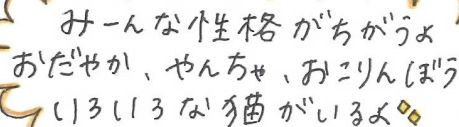 みーんな性格がちがうよ
おだやか、やんちゃ、おこりんぼう
いろいろな猫がいるよ